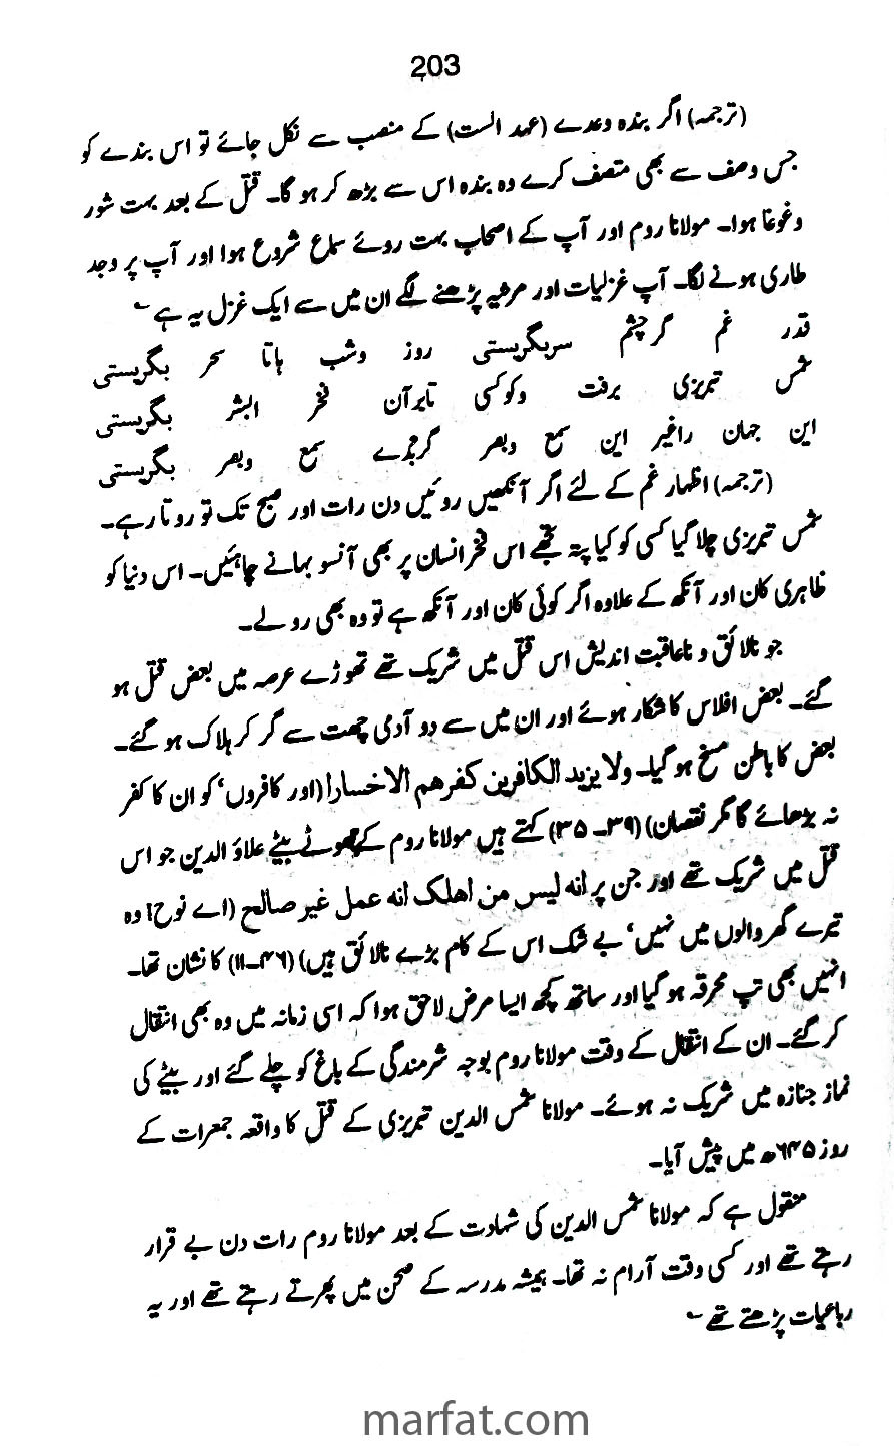 203
(ترجمہ) اگر بندہ وعدے (عہد الست) کے منصب سے نکل جائے تو اس بندے کو
جس وصف سے بھی متصف کرے وہ بندہ اس سے بڑھ کر ہو گا۔ قتل کے بعد بہت شور
و غوغا ہوا۔ مولانا روم اور آپ کے اصحاب بہت روئے سماع شروع ہوا اور آپ پر وجد
طاری ہونے لگا۔ آپ غزلیات اور مرثیہ پڑھنے لگے ان میں سے ایک غزل یہ ہے ؎
قدر غم گر چشم سر بگریستی روز و شب ہا تا سحر بگریستی
شمس تبریزی برفت و کو کسی تا بر آن فخر البشر بگریستی
این جہان را غیر این سمع و بصر گر بدے سمع و بصر بگریستی
(ترجمہ) اظہار غم کے لئے اگر آنکھیں روئیں دن رات اور صبح تک تو روتا رہے۔
شمس تبریزی چلا گیا کسی کو کیا پتہ تجھے اس فخر انسان پر بھی آنسو بہانے چاہئیں۔ اس دنیا کو
ظاہری کان اور آنکھ کے علاوہ اگر کوئی کان اور آنکھ ہے تو وہ بھی رو لے۔
جو نالائق و ناعاقبت اندیش اس قتل میں شریک تھے تھوڑے عرصہ میں بعض قتل ہو
گئے۔ بعض افلاس کا شکار ہوئے اور ان میں سے دو آدمی چھت سے گر کر ہلاک ہو گئے۔
بعض کا باطن مسخ ہو گیا۔ ولا یزید الکافرین کفرھم الاخسارا (اور کافروں‘ کو ان کا کفر
نہ بڑھائے گا مگر نقصان) (۳۹۔۳۵) کہتے ہیں مولانا روم کے چھوٹے بیٹے علاؤ الدین جو اس
قتل میں شریک تھے اور جن پر انہ لیس من اھلک انہ عمل غیر صالح (اے نوح! وہ
تیرے گھر والوں میں نہیں‘ بے شک اس کے کام بڑے نالائق ہیں) (۴۶۔۱۱) کا نشان تھا۔
انہیں بھی تپ محرقہ ہو گیا اور ساتھ کچھ ایسا مرض لاحق ہوا کہ اسی زمانہ میں وہ بھی انتقال
کر گئے۔ ان کے انتقال کے وقت مولانا روم بوجہ شرمندگی کے باغ کو چلے گئے اور بیٹے کی
نماز جنازہ میں شریک نہ ہوئے۔ مولانا شمس الدین تبریزی کے قتل کا واقعہ جمعرات کے
روز ۶۴۵ھ میں پیش آیا۔
منقول ہے کہ مولانا شمس الدین کی شہادت کے بعد مولانا روم رات دن بے قرار
رہتے تھے اور کسی وقت آرام نہ تھا۔ ہمیشہ مدرسہ کے صحن میں پھرتے رہتے تھے اور یہ
رباعیات پڑھتے تھے ؎
marfat.com